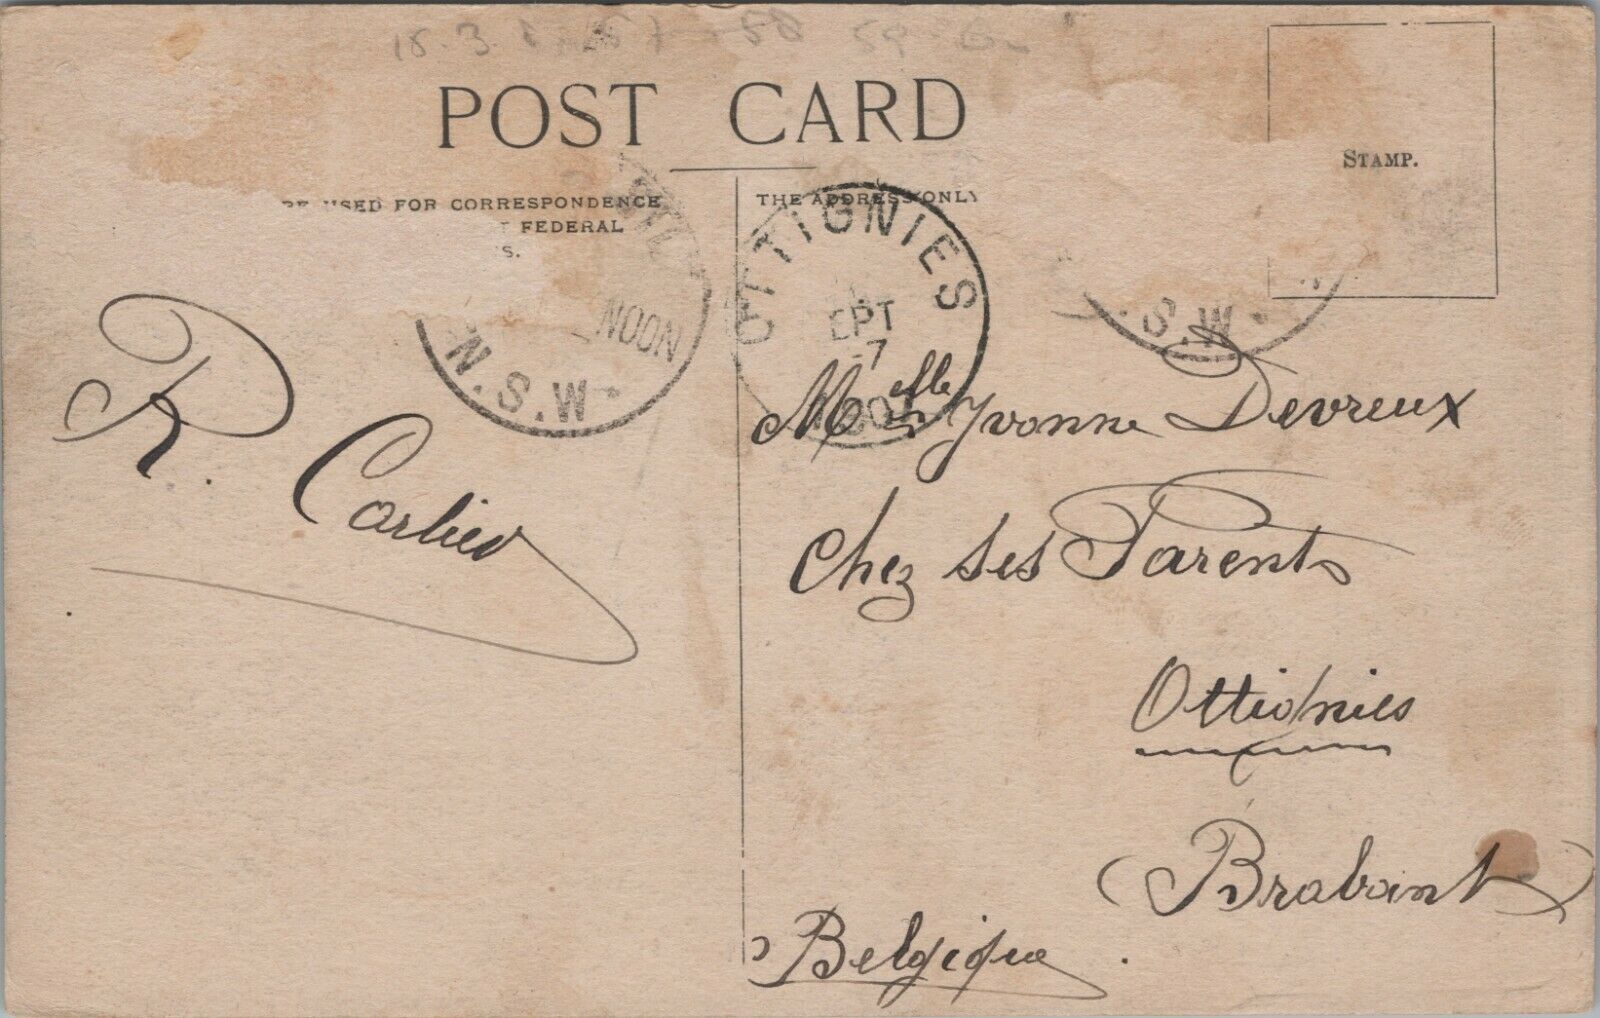 POST CARD
STAMP.
USED FOR CORRESPONDENCE
FEDERAL
THE ADDRESS ONLY
OTTIGNIES
EPT
-7
NOON
N.S.W.
S.W.
R. Carlier
Melle Yvonne Devreux
Chez ses Parents
Ottignies
(Brabant)
Belgique.